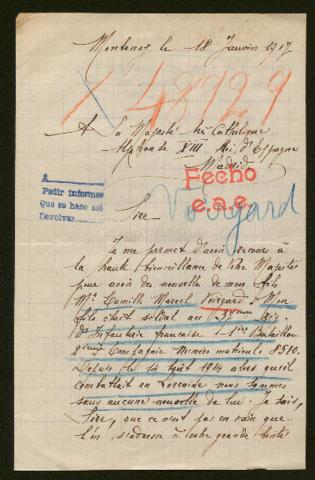 Montenoy le 18 Janvier 1917
X 48929
A Sa Majesté très Catholique
Alphonse XIII Roi d'Espagne
Madrid
Fecho
e.a.e.
A
Pedir informes
Que se hace así
Devolver
Voirgard
Sire,
Je me permet d'avoir recours à
la haute bienveillance de Votre Majesté
pour avoir des nouvelle de mon fils
Mr Camille Marcel Voirgard. Mon
fils était soldat au 37ème
d'Infanterie française 1ier Bataillon
2ème Compagnie Numéro matricule 8510.
Depuis le 14 Août 1914 alors qu'il
combattait en Lorraine nous sommes
sans aucune nouvelle de lui. Je sais,
Sire, que ce n'est pas en vain que
l'on s'adresse à votre grande bonté